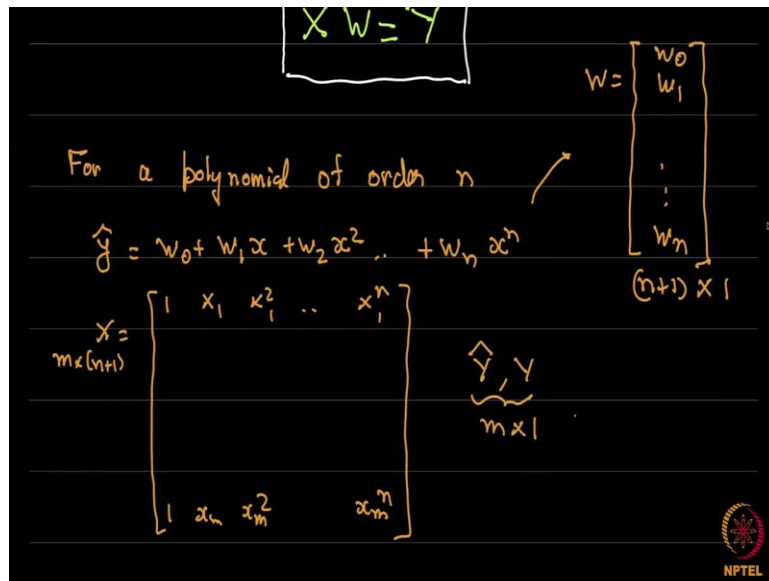 X W = Y
W = [ w₀
w₁
⋮
wₙ ]
(n+1) × 1
For a polynomial of order n
ŷ = w₀ + w₁x + w₂x² .. + wₙxⁿ
X = [ 1 x₁ x₁² .. x₁ⁿ
m×(n+1)
Ŷ, Y
m×1
1 xₘ xₘ² xₘⁿ ]
NPTEL